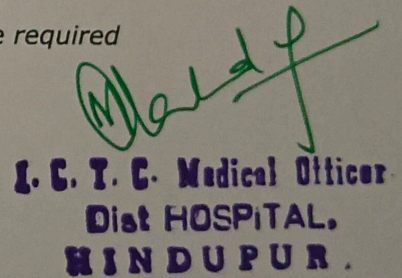 e required
I. C. T. C. Medical Officer
Dist HOSPITAL.
HINDUPUR.